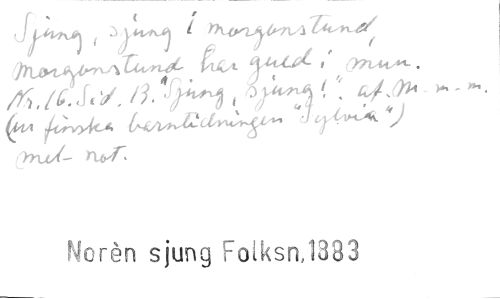 Sjung, sjung i morgonstund,
morgonstund har guld i mun.
Nr. 16. Sid. 13. "Sjung, sjung!". af. M-m-m.
(ur finska barntidningen "Sylvia")
mel- not.
Norèn sjung Folksn,1883